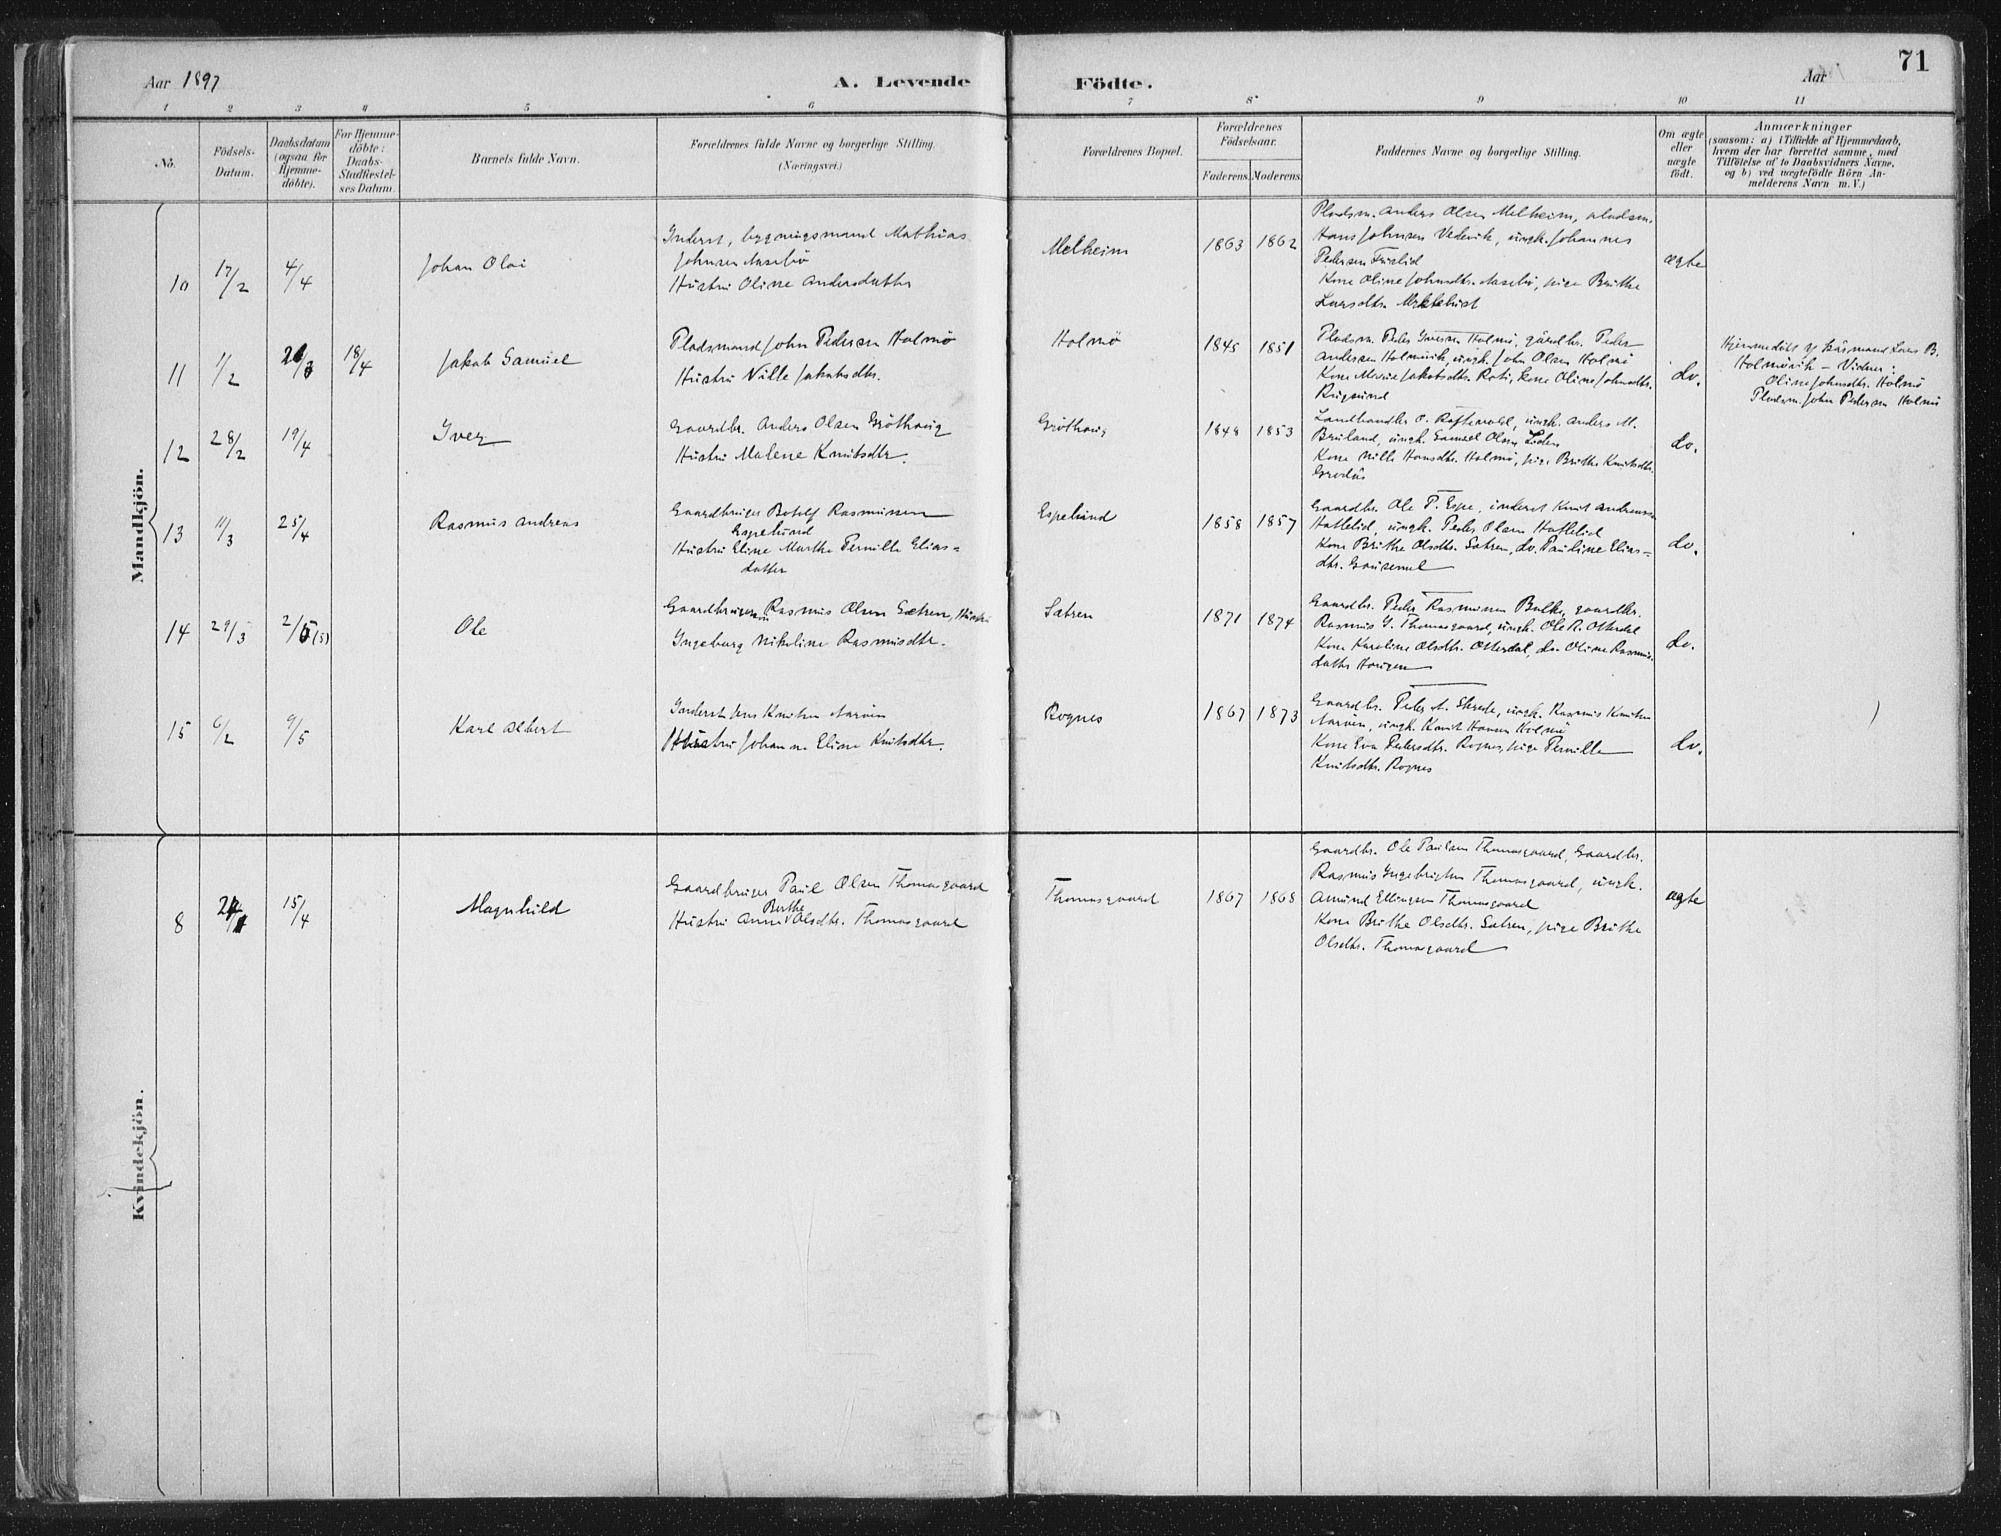 71
Aar 1897
A. Levende Födte.
Aar
1 2 3 4 5 6 7 8 9 10 11
No.
Födsels-Datum.
Daabsdatum (ogsaa for Hjemme-döbte).
For Hjemme-döbte: Daabs-Stadfæstel-ses Datum.
Barnets fulde Navn.
Forældrenes fulde Navne og borgerlige Stilling.
(Næringsvei.)
Forældrenes Bopæl.
Forældrenes Födselsaar.
Faderens. Moderens.
Faddernes Navne og borgerlige Stilling.
Om ægte eller uægte födt.
Anmærkninger
(saasom: a) i Tilfælde af Hjemmedaab,
hvem der har forrettet samme, med
Tilföielse af to Daabsvidners Navne,
og b) ved uægtefödte Börn An-
melderens Navn m. V.)
Mandkjön.
10 17/2 4/4 Johan Olai
Inderst, bygningsmand Mathias
Johnsen Naseby
Hustru Oline Andersdatter
Melheim 1863 1862
Pladsm. Anders Olsen Melheim, pladsm.
Hans Johnsen Vedvik, ungk. Johannes
Pedersen
Kone Oline Johnsdtr. pige Brithe
Larsdtr. Myklebust
ægte
11 1/2 18/4 Jakob Samuel
Pladsmand John Pedersen Holmö
Hustru Nille Jakobsdtr.
Holmö 1845 1851
Pladsm. Peder Iversen Holmö, gaardbr. Peder
Andersen Holmövik, ungk. John Olsen Holmö
Kone Jakobsdtr. Kone Oline Johnsdtr.
Rugsund
do.
Hjemmedöbt af Lars B.
Holmövik – Vidner:
Oline Johnsdtr. Holmö
Pladsm. John Pedersen Holmö
12 28/2 19/4 Iver
Gaardbr. Anders Olsen Gröthaug
Hustru Malene Knutsdtr.
Gröthaug 1848 1853
Landhandler O. ungk. Anders M.
ungk. Samuel Olsen
Kone Nille Hansdtr. Holmö, pige Brithe Knutsdtr.
do.
13 11/3 25/4 Rasmus Andreas
Gaardbruger Botolf Rasmussen
Hustru Eline Marthe Pernille Elias-
datter
Espelund 1858 1857
Gaardbr. Ole P. Espe, inderst Knut Andreassen
Hatlelid, ungk. Peder Olsen Hatlelid
Kone Brithe Olsdtr. Sætren, do. Pauline Elias-
dtr.
do.
14 29/3 2/5 (5) Ole
Gaardbruger Rasmus Olsen Sætren, Hustru
Ingeborg Nikoline Rasmusdtr.
Sætren 1871 1874
Gaardbr. Peder Rasmussen gaardbr.
Rasmus I. Thomasgaard, ungk. Ole R. Otterdal
Kone Karoline Olsdtr. Otterdal, do. Oline Rasmus-
datter Haugen
do.
15 6/2 9/5 Karl Albert
Inderst Jens Knutsen
Hustru Johanne Eline Knutsdtr.
Rognes 1867 1873
Gaardbr. Peder A. ungk. Rasmus Knutsen
ungk. Knut Hansen Holmö
Kone Eva Pedersdtr. Rognes, pige Pernille
Knutsdtr. Rognes
do.
Kvindekjön.
8 15/4 Magnhild
Gaardbruger Paul Olsen Thomasgaard
Hustru Anne Berthe Olsdtr. Thomasgaard
Thomasgaard 1867 1868
Gaardbr. Ole Paulsen Thomasgaard, Gaardbr.
Rasmus Ingebrigtsen Thomasgaard, ungk.
Amund Ellingsen Thomasgaard
Kone Brithe Olsdtr. Sætren, pige Brithe
Olsdtr. Thomasgaard
ægte